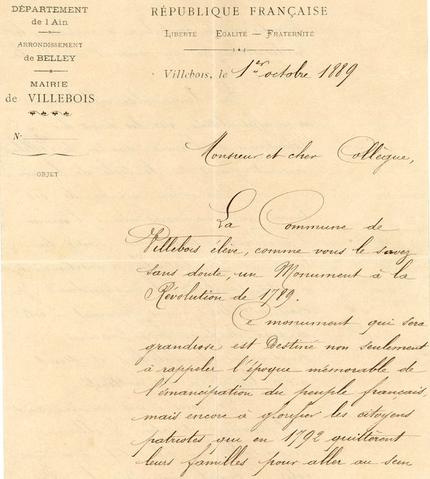 DÉPARTEMENT
de l Ain
ARRONDISSEMENT
de BELLEY
MAIRIE
de VILLEBOIS
N.
OBJET
RÉPUBLIQUE FRANÇAISE
LIBERTÉ EGALITÉ — FRATERNITÉ
Villebois, le 1er octobre 1889
Monsieur et cher Collègue,
La Commune de
Villebois élève, comme vous le savez
sans doute, un Monument à la
Révolution de 1789.
Ce monument qui sera
grandiose est Destiné non seulement
à rappeler l'époque mémorable de
l'émancipation du peuple français,
mais encore à glorifier les citoyens
patriotes, qui en 1792 quittèrent
leurs familles pour aller au sein